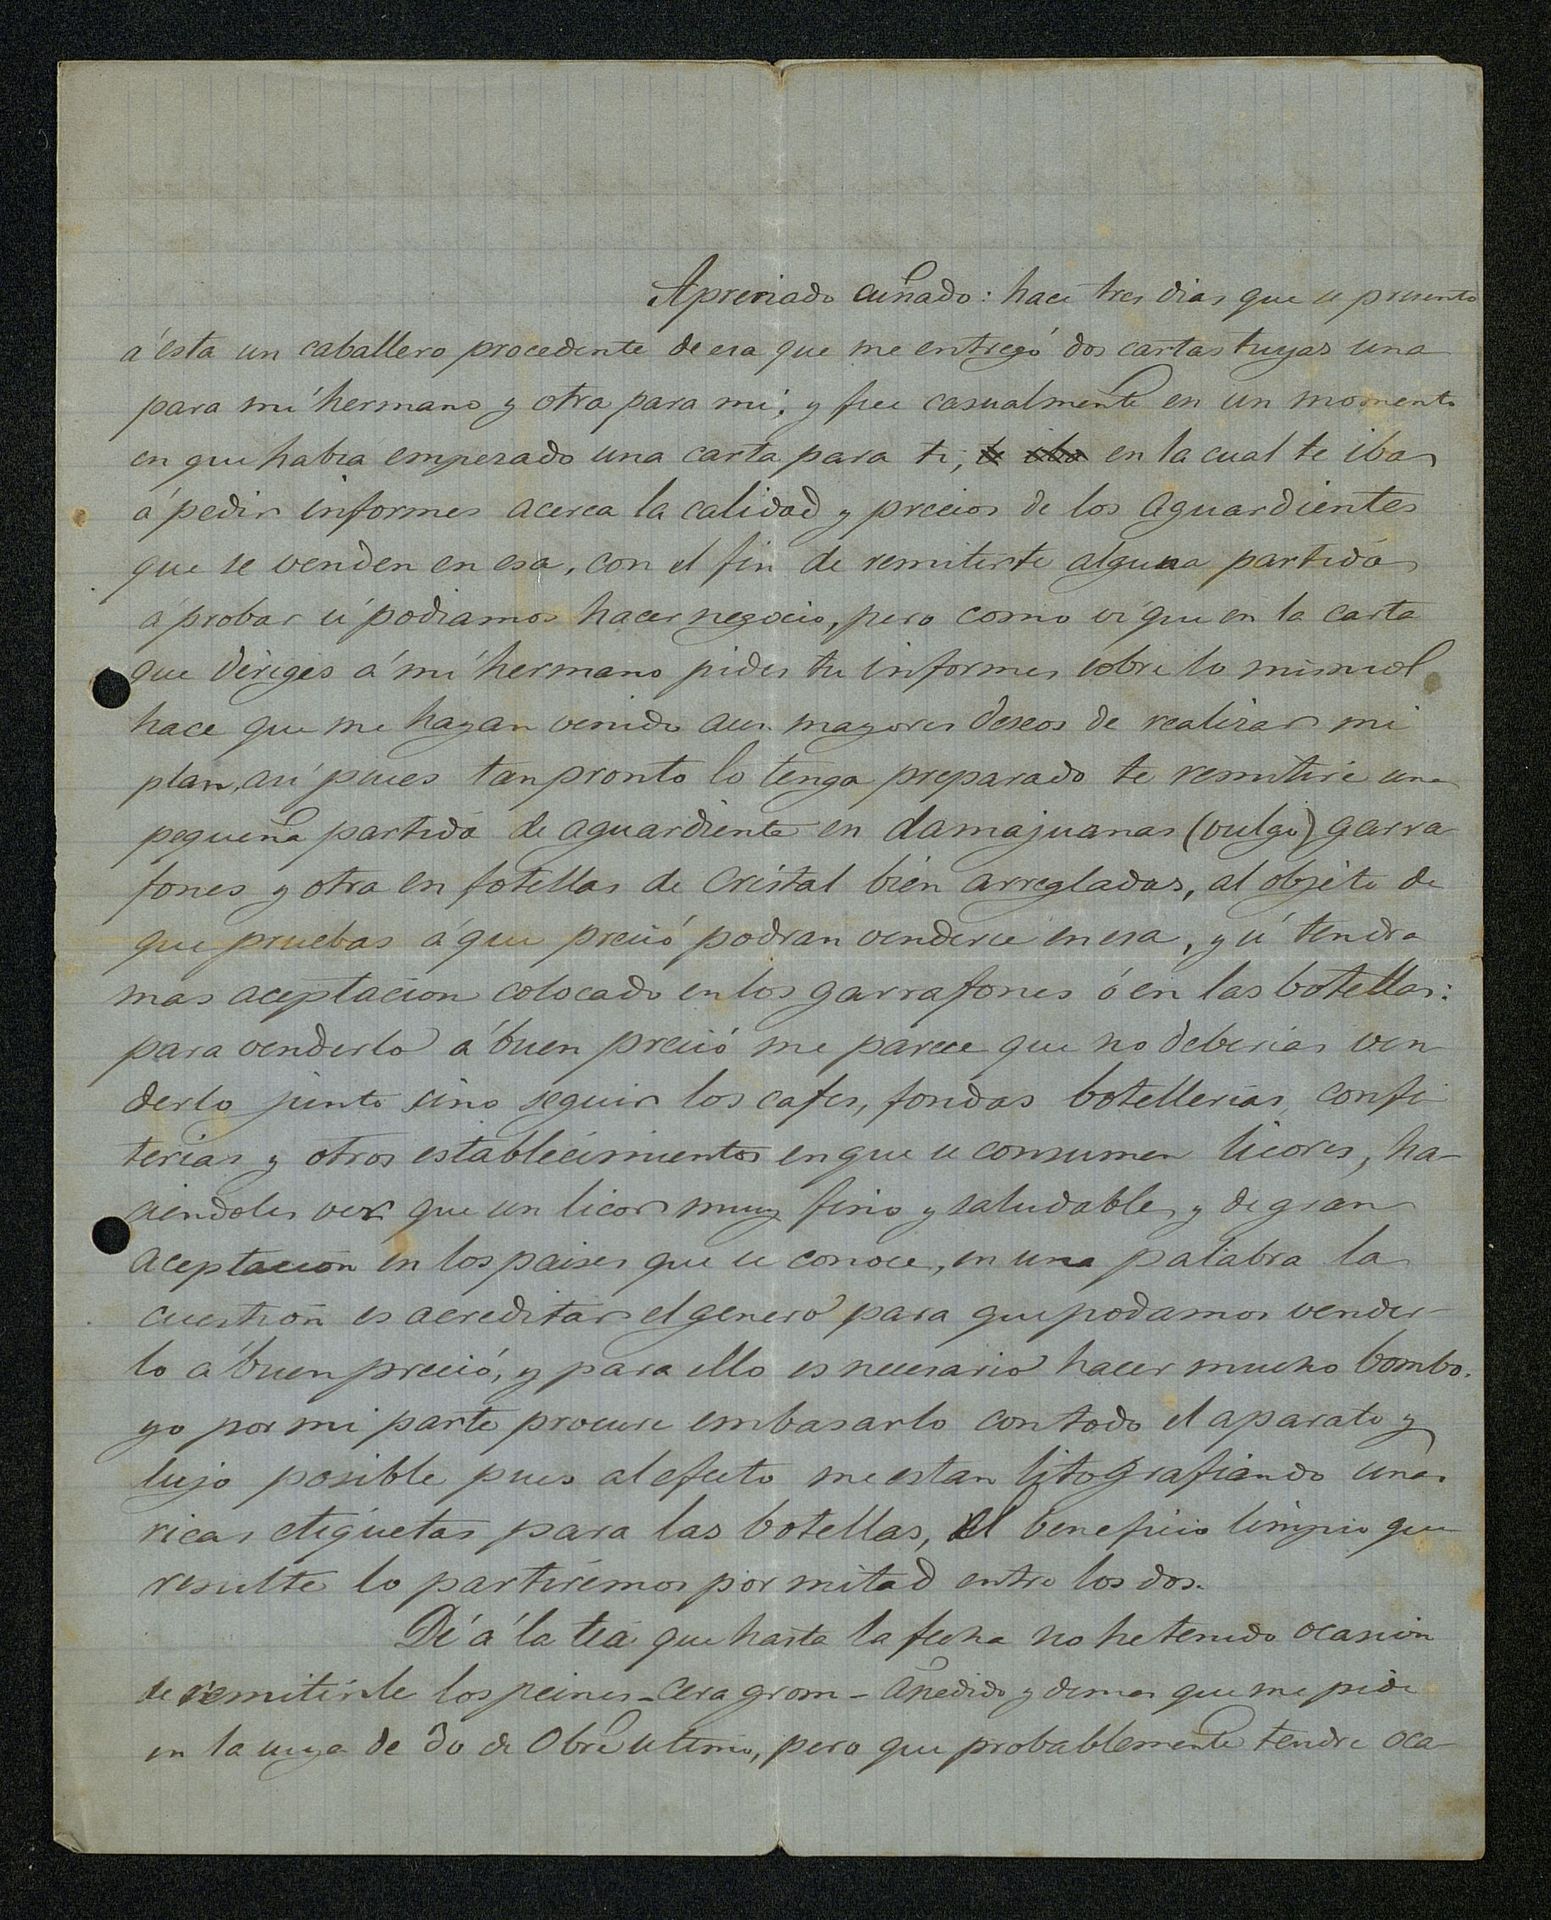 Apreciado cuñado: hace tres dias que se presento
á esta un caballero procedente de esa que me entregó dos cartas tuyas una
para mi hermano y otra para mi; y fue casualmente en un momento
en que habia empezado una carta para ti, te iba en la cual te iba
á pedir informes acerca la calidad y precios de los aguardientes
que se venden en esa, con el fin de remitirte alguna partida
á probar si podiamos hacer negocio, pero como vi que en la carta
que diriges á mi hermano pides tu informes sobre lo mismo
hace que me hayan venido aun mayores deseos de realizar mi
plan, asi pues tan pronto lo tenga preparado te remitire una
pequeña partida de aguardiente en damajuanas (vulgo) garra
fones y otra en fotellas de cristal bien arregladas, al objeto de
que pruebas á que preció podran venderce en esa, y si tendra
mas aceptacion colocado en los garrafones ó en las botellas:
para venderlo á buen preció me parece que no deberias ven
derlo junto sino seguir los cafes, fondas botellerias, confi
terias y otros establecimientos en que se consumen licores, ha-
ciendoles ver que un licor muy fino y saludable y de gran
aceptación en los paises que se conoce, en una palabra la
cuestion es acreditar el genero para que podamos vender-
lo á buen preció, y para ello es necesario hacer mucho bombo.
yo por mi parte procure embasarlo con todo el aparato y
lujo posible pues al efecto me estan litografiando unas
ricas etiquetas para las botellas, el beneficio limpio que
resulte lo partiremos por mitad entre los dos.
Dí á la tia que hasta la fecha no he tenido ocasion
de remitirle los peines - cera grom - añedido y demas que me pide
en la suya de 30 de Obre ultimo, pero que probablemente tendre oca-